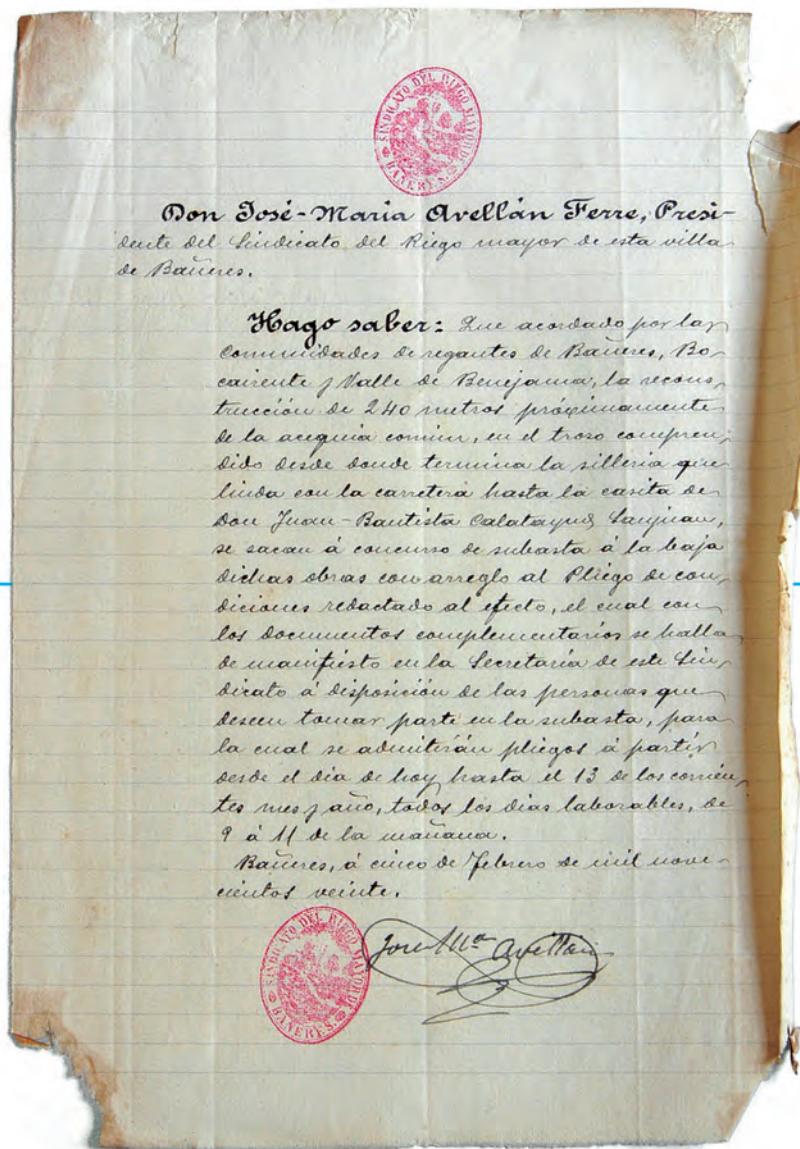 SINDICATO DEL RIEGO MAYOR DE
BAÑERES.
Don José-Maria Avellán Ferre, Presi-
dente del Sindicato del Riego mayor de esta villa
de Bañeres.
Hago saber: Que acordado por las
comunidades de regantes de Bañeres, Bo-
cairente y Valle de Benejama, la recons-
trucción de 240 metros próximamente
de la acequia comun, en el trozo compren-
dido desde donde termina la silleria que
linda con la carretera hasta la casita de
Don Juan-Bautista Calatayud Sanjuan,
se sacan á concurso de subasta á la baja
dichas obras con arreglo al Pliego de con-
diciones redactado al efecto, el cual con
los documentos complementarios se halla
de manifiesto en la Secretaría de este Sin-
dicato á disposición de las personas que
deseen tomar parte en la subasta, para
la cual se admitirán pliegos á partir
desde el dia de hoy hasta el 13 de los corrien-
tes mes y año, todos los dias laborables, de
9 á 11 de la mañana.
Bañeres, á cinco de Febrero de mil nove-
cientos veinte.
José Mª Avellán
SINDICATO DEL RIEGO MAYOR DE
BAÑERES.